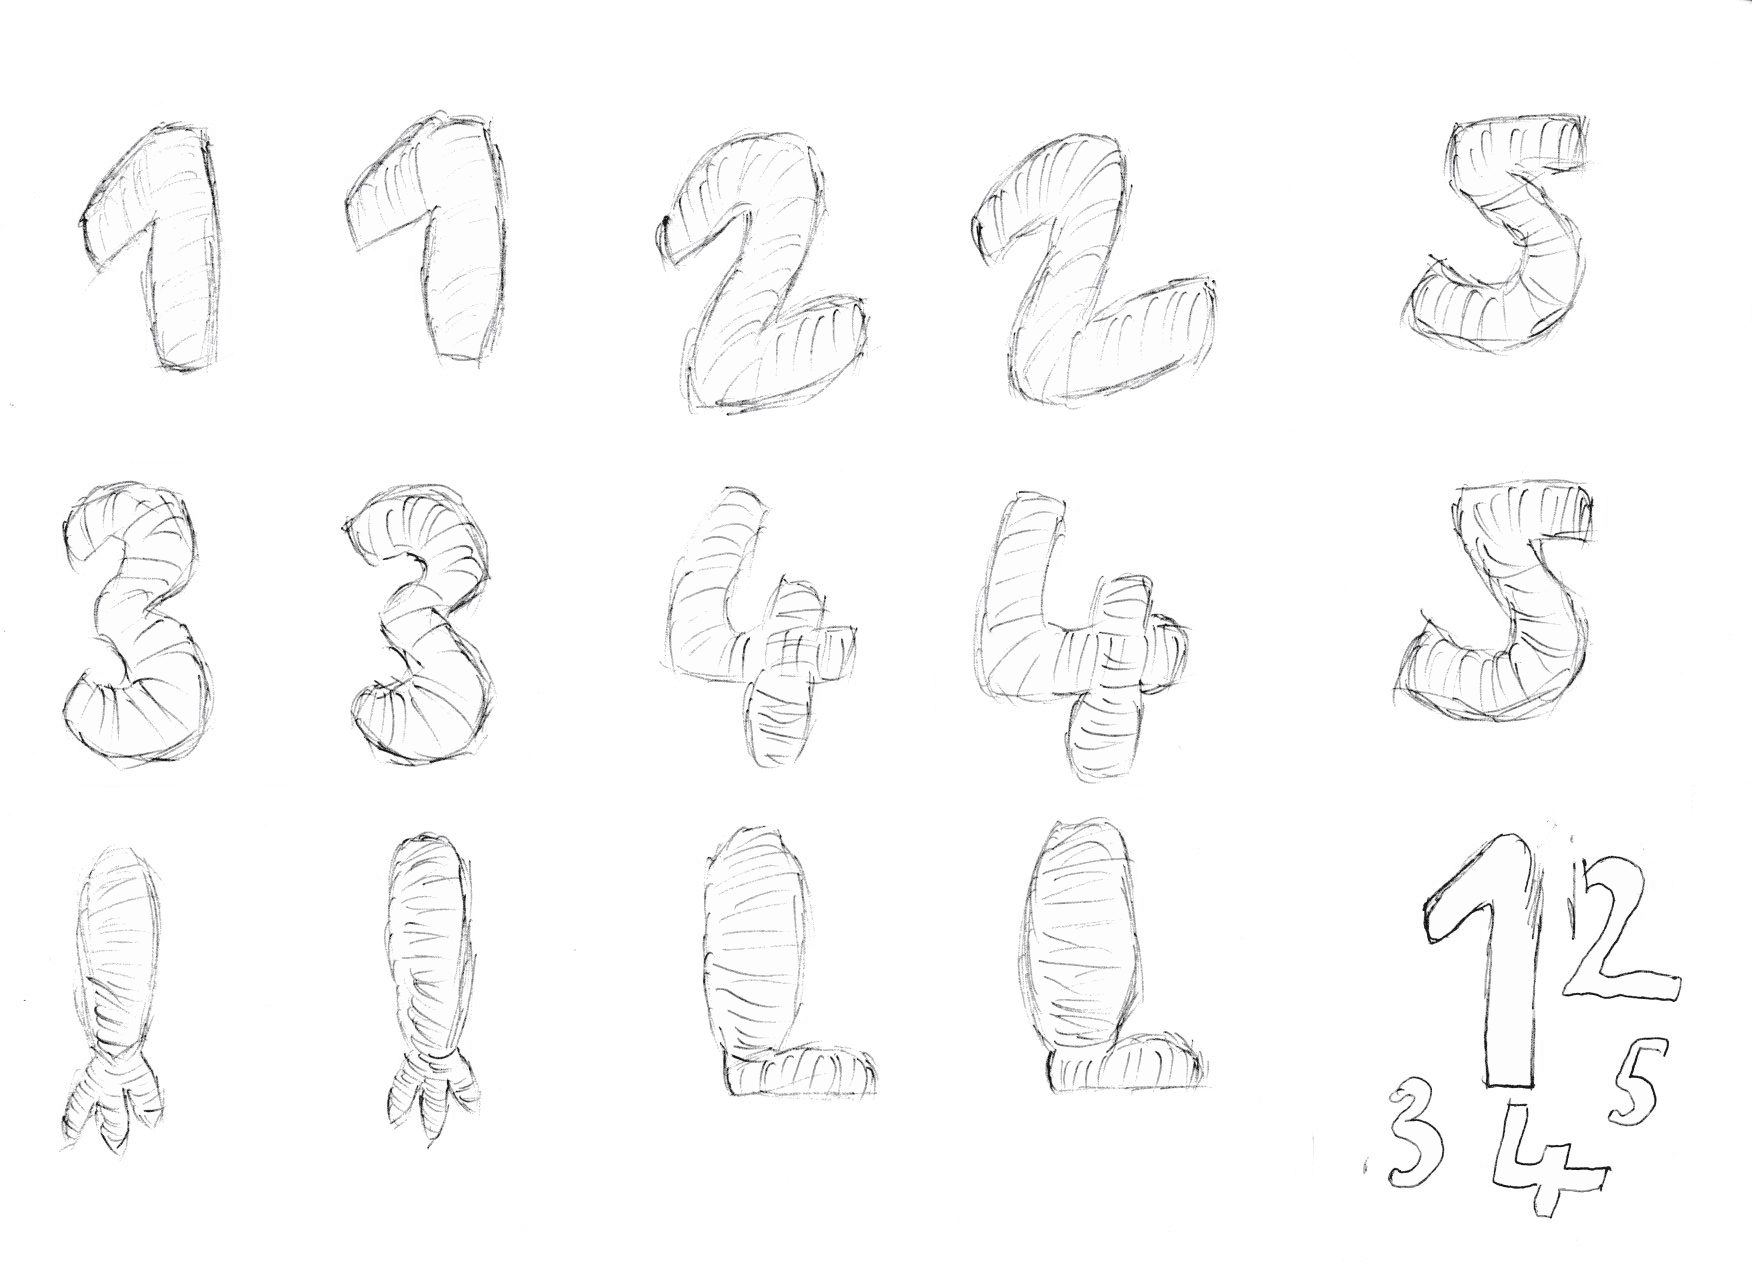 1 1 2 2 5
3 3 4 4 5
1 2
5
3 4